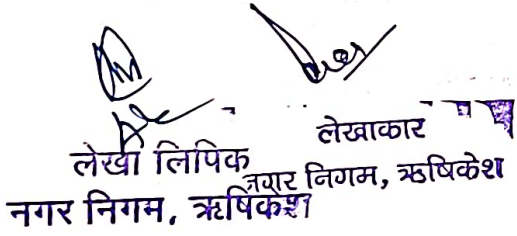 लेखा लिपिक
नगर निगम, ऋषिकेश
लेखाकार
नगर निगम, ऋषिकेश